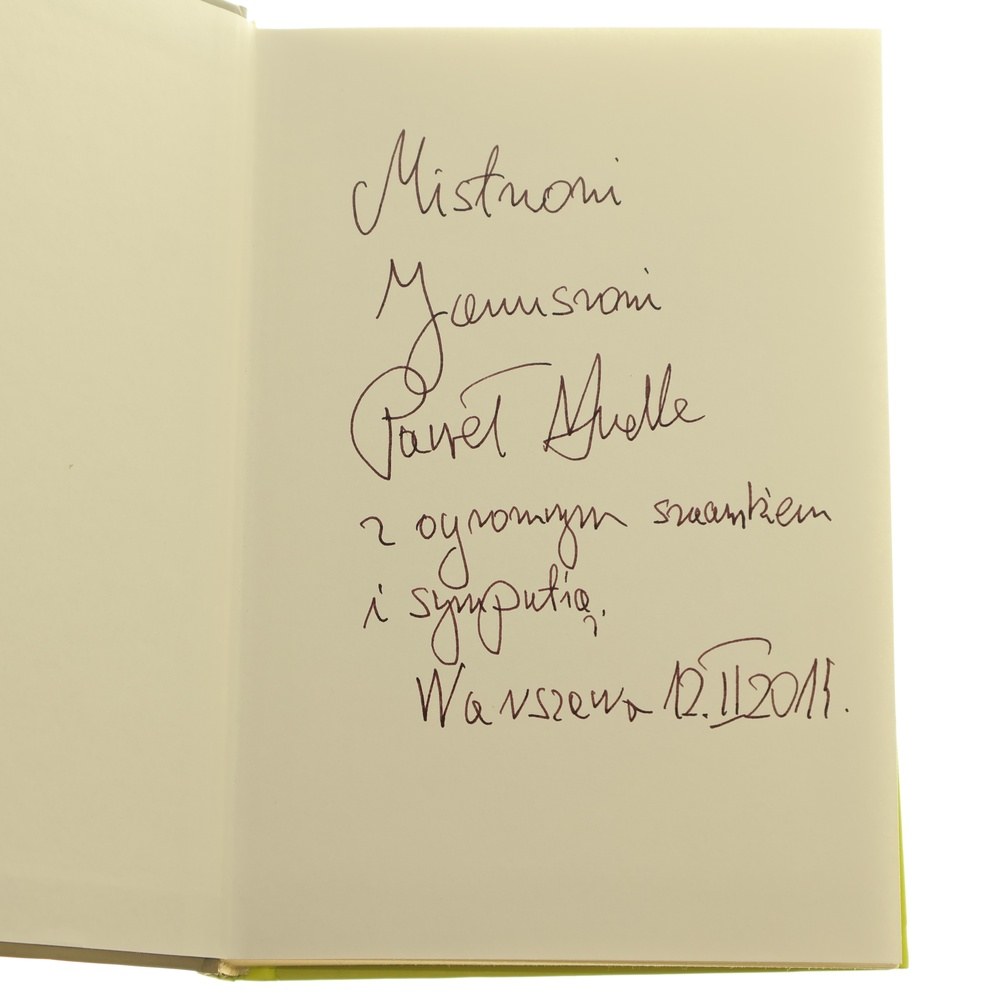 Mistrzowi
Januszowi
Paweł
z ogromnym szacunkiem
i sympatią,
Warszawa 12.II 201